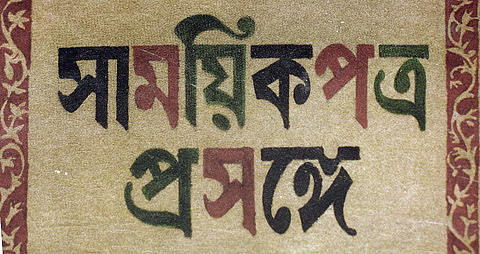 সাময়িকপত্র
প্রসঙ্গে